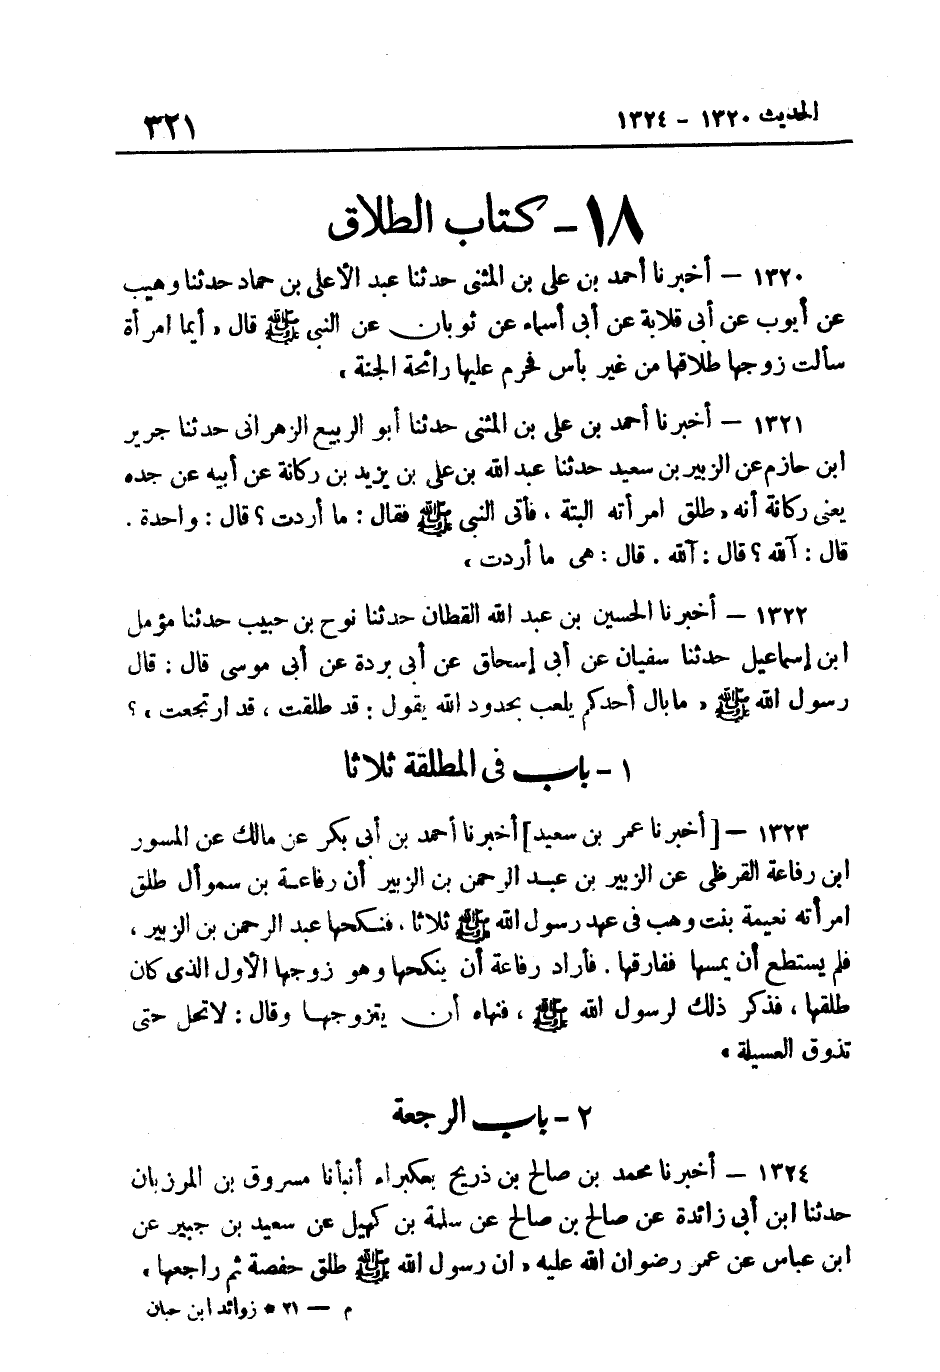 الحديث ١٣٢٠ - ١٣٢٤
٣٢١
١٨ - كتاب الطلاق
١٣٢٠ — أخبرنا أحمد بن على بن المثنى حدثنا عبد الأعلى بن حماد حدثنا وهيب
عن أيوب عن أبى قلابة عن أبى أسماء عن ثوبان عن النبى ﷺ قال « أيما امرأة
سألت زوجها طلاقها من غير بأس فحرم عليها رائحة الجنة »
١٣٢١ — أخبرنا أحمد بن على بن المثنى حدثنا أبو الربيع الزهرانى حدثنا جرير
ابن حازم عن الزبير بن سعيد حدثنا عبد الله بن على بن يزيد بن ركانة عن أبيه عن جده
يعنى ركانة أنه « طلق امرأته البتة ، فأتى النبى ﷺ فقال : ما أردت ؟ قال : واحدة .
قال : آلله ؟ قال : آلله . قال : هى ما أردت »
١٣٢٢ — أخبرنا الحسين بن عبد الله القطان حدثنا نوح بن حبيب حدثنا مؤمل
ابن إسماعيل حدثنا سفيان عن أبى إسحاق عن أبى بردة عن أبى موسى قال : قال
رسول الله ﷺ « ما بال أحدكم يلعب بحدود الله يقول : قد طلقت ، قد ارتجعت » ؟
١ - باب فى المطلقة ثلاثا
١٣٢٣ — [ أخبرنا عمر بن سعيد ] أخبرنا أحمد بن أبى بكر عن مالك عن المسور
ابن رفاعة القرظى عن الزبير بن عبد الرحمن بن الزبير أن رفاعة بن سموأل طلق
امرأته نعيمة بنت وهب فى عهد رسول الله ﷺ ثلاثا ، فنكحها عبد الرحمن بن الزبير ،
فلم يستطع أن يمسها ففارقها . فأراد رفاعة أن ينكحها وهو زوجها الأول الذى كان
طلقها ، فذكر ذلك لرسول الله ﷺ ، فنهاه أن يتزوجها وقال : لا تحل حتى
تذوق العسيلة »
٢ - باب الرجعة
١٣٢٤ — أخبرنا محمد بن صالح بن ذريح بعكبراء أنبأنا مسروق بن المرزبان
حدثنا ابن أبى زائدة عن صالح بن صالح عن سلمة بن كهيل عن سعيد بن جبير عن
ابن عباس عن عمر رضوان الله عليه « ان رسول الله ﷺ طلق حفصة ثم راجعها »
م — ٢١ * زوائد ابن حبان